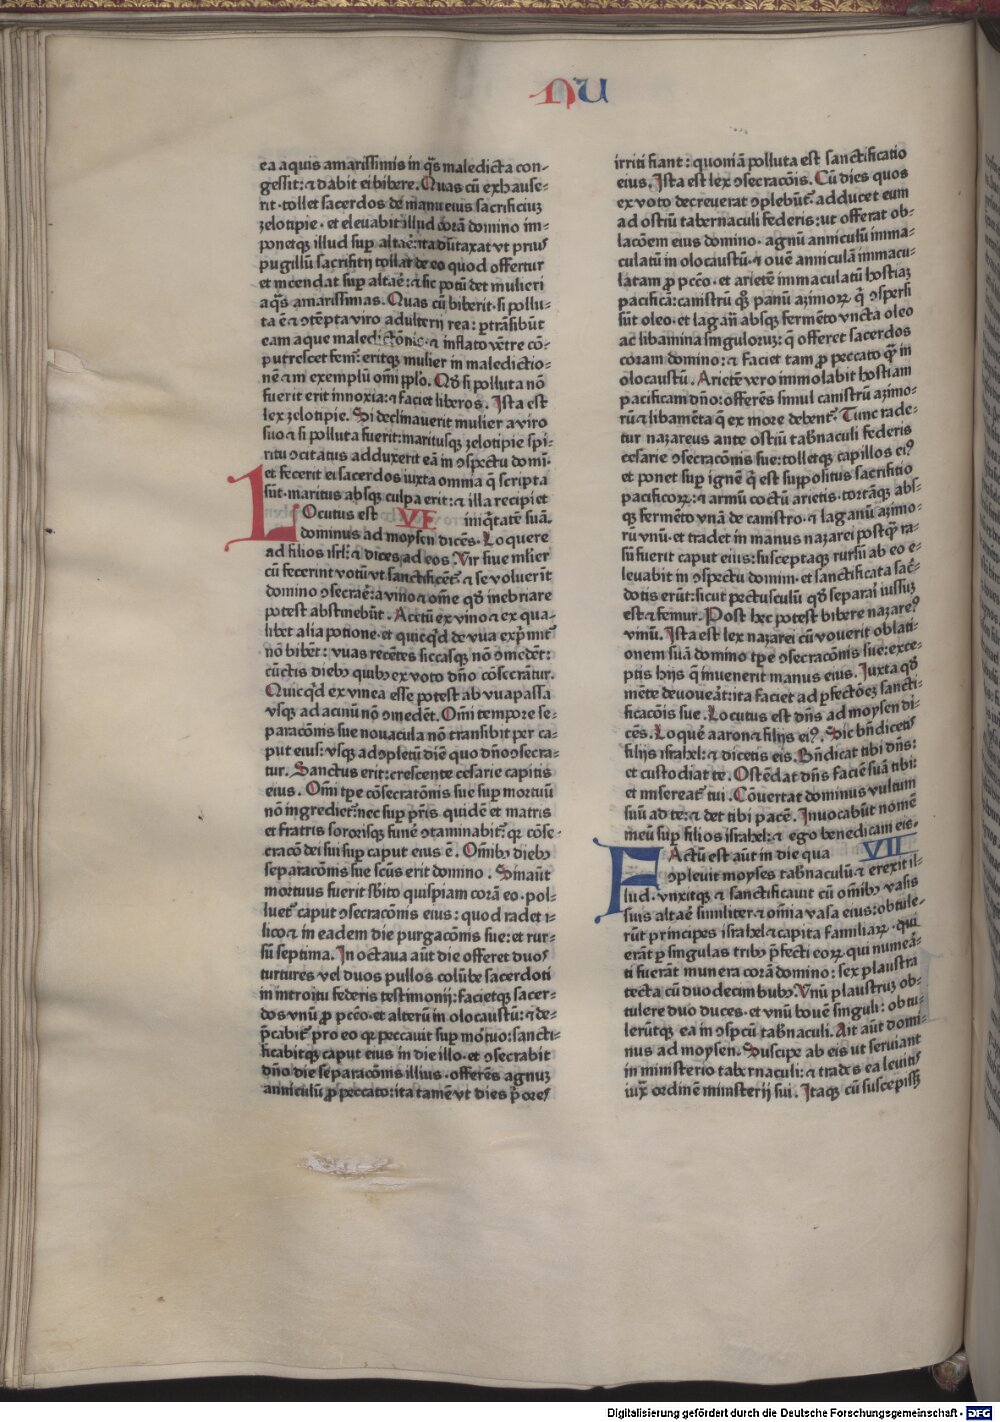 NU
ea aquis amarissimis in q̄s maledicta con-
gessit: ⁊ dabit ei bibere. Quas cū exhause-
rit· tollet sacerdos de manu eius sacrificiuʒ
zelotipie· et eleuabit illud corā domino im-
ponetqꝫ illud suꝑ altaē: ita dūtaxat ut prius
pugillū sacrificij tollat de eo quod offertur
et incendat suꝑ altaē: ⁊ sic potū det mulieri
aq̄s amarissimas. Quas cū biberit· si pollu-
ta ē ⁊ ↄtēpta viro adulterij rea: ꝑtrāsibūt
eam aque maledictōnis· ⁊ inflato vētre cō-
putrescet femˀ: eritqꝫ mulier in maledictio-
nē ⁊ in exemplū omī pp̄lo. Qḋ si polluta nō
fuerit erit innoxia: ⁊ faciet liberos. Ista est
lex zelotipie. Si declinauerit mulier a viro
suo ⁊ si polluta fuerit: maritusqꝫ zelotipie spi-
ritu ↄcitatus adduxerit eā in ↄspectu domī·
et fecerit ei sacerdos iuxta omnia q̄ scripta
sūt· maritus absqꝫ culpa erit: ⁊ illa recipiet
LOcutus est VI iniq̄tatē suā.
dominus ad moysen dicēs. Loquere
ad filios isrl̄: ⁊ dices ad eos. Vir siue mlier
cū fecerint votū vt sanctificēt ⁊ se voluerīt
domino ↄsecraē: a vino ⁊ om̄e qḋ inebriare
potest abstinebūt. Acetū ex vino ⁊ ex qua-
libet alia potione· et quicq̇d de vua exp̄mit
nō bibēt: vuas recētes siccasqꝫ nō ↄmedēt:
cūctis diebꝫ quibꝫ ex voto dn̄o cōsecrātur.
Quicq̇d ex vinea esse potest ab vua passa
vsqꝫ ad acinū nō ↄmedēt. Omī tempore se-
paracōnis sue nouacula nō transibit per ca-
put eius: vsqꝫ ad ↄpletū diē quo dn̄o ↄsecra-
tur. Sanctus erit: crescente cesarie capitis
eius. Omī tp̄e cōsecratōnis sue suꝑ mortuū
nō ingredietˀ: nec suꝑ pr̄is· quidē et matris
et fratris sororisqꝫ funē ↄtaminabitˀ: qꝛ cōse-
cracō dei sui suꝑ caput eius ē. Omībꝫ diebꝫ
separacōnis sue sc̄us erit domino. Sin aūt
mortuus fuerit sb̄ito quispiam corā eo· pol-
luetˀ caput ↄsecracōnis eius: quod radet i-
lico ⁊ in eadem die purgacōnis sue: et rur-
sū septima. In octaua aūt die offeret duos
turtures vel duos pullos colūbe sacerdoti
in introitu federis testimonij: facietqꝫ sacer-
dos vnū ꝓ pcc̄o· et alterū in olocaustū: ⁊ de-
p̄cabitˀ pro eo qꝛ peccauit suꝑ mōtuo: sancti-
ficabitqꝫ caput eius in die illo· et ↄsecrabit
dn̄o die separacōnis illius· offerēs agnuʒ
anniculū ꝓ peccato: ita tamē vt dies p̄ores
irriti fiant: quoniā polluta est sanctificatio
eius. Ista est lex ↄsecracōis. Cū dies quos
ex voto decreuerat ↄplebūtˀ: adducet eum
ad ostiū tabernaculi federis: ut offerat ob-
lacōem eius domino· agnū anniculū imma-
culatū in olocaustū· ⁊ ouē anniculā immacu-
latam ꝓ pcc̄o· et arietē immaculatū hostiaʒ
pacificā: canistrū qꝫ panū azimoꝝ q̄ ↄspersi
sūt oleo· et lagan̄ absqꝫ fermēto vncta oleo
ac libamina singuloruʒ: q̄ offeret sacerdos
coram domino: ⁊ faciet tam ꝓ peccato q̄ꝫ in
olocaustū. Arietē vero immolabit hostiam
pacificam dn̄o: offerēs simul canistrū azimo-
rū ⁊ libamēta q̄ ex more debentˀ. Tunc rade-
tur nazareus ante ostiū tab̄naculi federis
cesarie ↄsecracōnis sue: tolletqꝫ capillos eiꝰ
et ponet suꝑ ignē q̄ est suppositus sacrificio
pacificoꝝ: ⁊ armū coctū arietis· tortāqꝫ abs-
qꝫ fermēto vnā de canistro· ⁊ laganū azimo-
rū vnū· et tradet in manus nazarei postq̄ꝫ ra-
sū fuerit caput eius: susceptaqꝫ rursū ab eo e-
leuabit in ↄspectu domini· et sanctificata sac̄-
dotis erūt: sicut pectusculū qḋ separari iussuʒ
est ⁊ femur. Post hec potest bibere nazareꝰ
vinū. Ista est lex nazarei cū vouerit oblati-
onem suā domino tp̄e ↄsecracōnis sue: exce-
ptis hijs q̄ inuenerit manus eius. Juxta qḋ
mēte deuoueāt: ita faciet ad ꝑfectōeʒ sancti-
ficacōis sue. Locutus est dn̄s ad moysen di-
cēs. Loqueē aaron ⁊ filijs eiꝰ. Sic bn̄dicetis
filijs israhel: ⁊ dicetis eis. Bn̄dicat tibi dn̄s:
et custodiat te. Ostēdat dn̄s faciē suā tibi:
et misereatˀ tui. Cōuertat dominus vultum
suū ad te: ⁊ det tibi pacē. Inuocabūt nomē
meū suꝑ filios israhel: ⁊ ego benedicam eis.
FActū est aūt in die qua VII
ↄpleuit moyses tabnaculū ⁊ erexit il-
lud· vnxitqꝫ ⁊ sanctificauit cū omībꝫ vasis
suis altaē similiter ⁊ omīa vasa eius: obtule-
rūt principes israhel ⁊ capita familiaꝝ· qui
erāt ꝑ singulas tribꝫ p̄fecti eoꝝ qui numeā-
ti fuerāt munera corā domino: sex plaustra
tecta cū duodecim bubꝫ. Vnū plaustruʒ ob-
tulere duo duces· et vnū bouē singuli: obtu-
lerūtqꝫ ea in ↄspcū tab̄naculi. Ait aūt domi-
nus ad moysen. Suscipe ab eis ut seruiant
in ministerio tabernaculi: ⁊ trades ea leuitis
iuxˀ ordinē ministerij sui. Itaqꝫ cū suscepissʒ
Digitalisierung gefördert durch die Deutsche Forschungsgemeinschaft - DFG